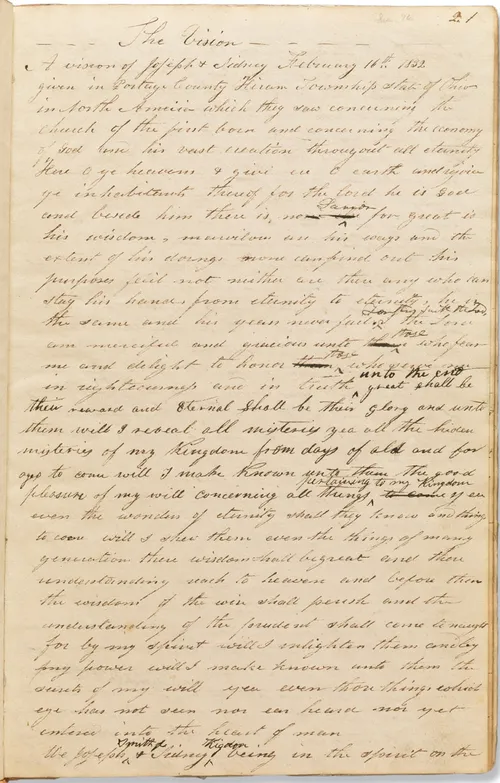 21
The Vision
A vision of Joseph & Sidney February 16th 1832
given in Portage County Hiram Township state of Ohio
in North America which they saw concerning the
church of the first born and concerning the economy
of God and his vast creation througout all eternity
Hear O ye heavens & give ear O earth and rejoice
ye inhabitants thereof for the lord he is God
and beside him there is none else for great is
Saveior
his wisdom, marvilous are his ways and the
extent of his doings none can find out his
purposes fail not neither are there any who can
stay his hand from eternity to eternity he is
the same and his years never fail the Lord
for thus saith the Lord
am merciful and gracious unto those who fear
me and delight to honor those who serve me
in righteousness and in truth great shall be
unto the end
their reward and eternal shall be their glory and unto
them will I reveal all misteries yea all the hiden
misteries of my Kingdom from days of old and for
ages to come will I make known unto them the good
pleasure of my will concerning all things to come yea
pertaining to my Kingdom
even the wonders of eternity shall they know and things
to come will I shew them even the things of many
generations there wisdom shall be great and their
understanding reach to heaven and before them
the wisdom of the wise shall perish and the
understanding of the prudent shall come to naught
for by my spirit will I enlighten them and by
my power will I make known unto them the
secrets of my will yea even those things which
eye has not seen nor ear heard nor yet
entered into the heart of man
We Joseph & Sidney being in the spirit on the
Smith Jr Rigdon